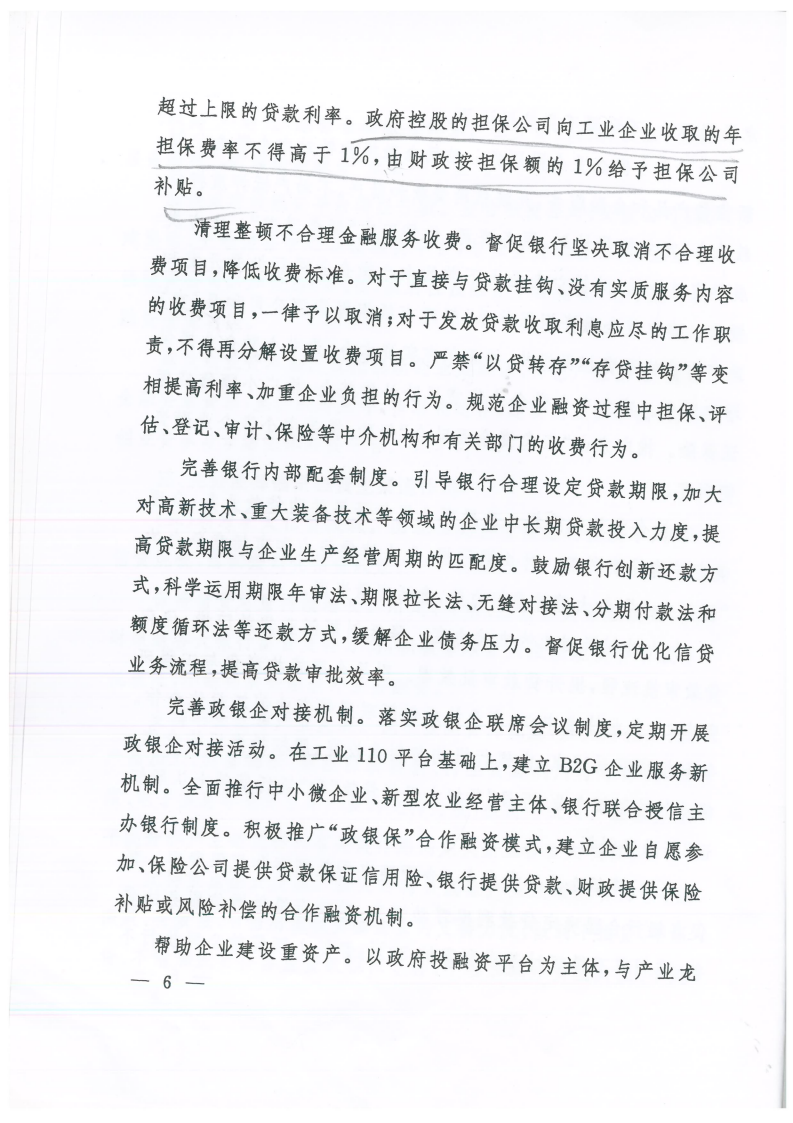 超过上限的贷款利率。政府控股的担保公司向工业企业收取的年
担保费率不得高于1%,由财政按担保额的1%给予担保公司
补贴。
清理整顿不合理金融服务收费。督促银行坚决取消不合理收
费项目,降低收费标准。对于直接与贷款挂钩、没有实质服务内容
的收费项目,一律予以取消;对于发放贷款收取利息应尽的工作职
责,不得再分解设置收费项目。严禁“以贷转存”“存贷挂钩”等变
相提高利率、加重企业负担的行为。规范企业融资过程中担保、评
估、登记、审计、保险等中介机构和有关部门的收费行为。
完善银行内部配套制度。引导银行合理设定贷款期限,加大
对高新技术、重大装备技术等领域的企业中长期贷款投入力度,提
高贷款期限与企业生产经营周期的匹配度。鼓励银行创新还款方
式,科学运用期限年审法、期限拉长法、无缝对接法、分期付款法和
额度循环法等还款方式,缓解企业债务压力。督促银行优化信贷
业务流程,提高贷款审批效率。
完善政银企对接机制。落实政银企联席会议制度,定期开展
政银企对接活动。在工业110平台基础上,建立B2G企业服务新
机制。全面推行中小微企业、新型农业经营主体、银行联合授信主
办银行制度。积极推广“政银保”合作融资模式,建立企业自愿参
加、保险公司提供贷款保证信用险、银行提供贷款、财政提供保险
补贴或风险补偿的合作融资机制。
帮助企业建设重资产。以政府投融资平台为主体,与产业龙
— 6 —